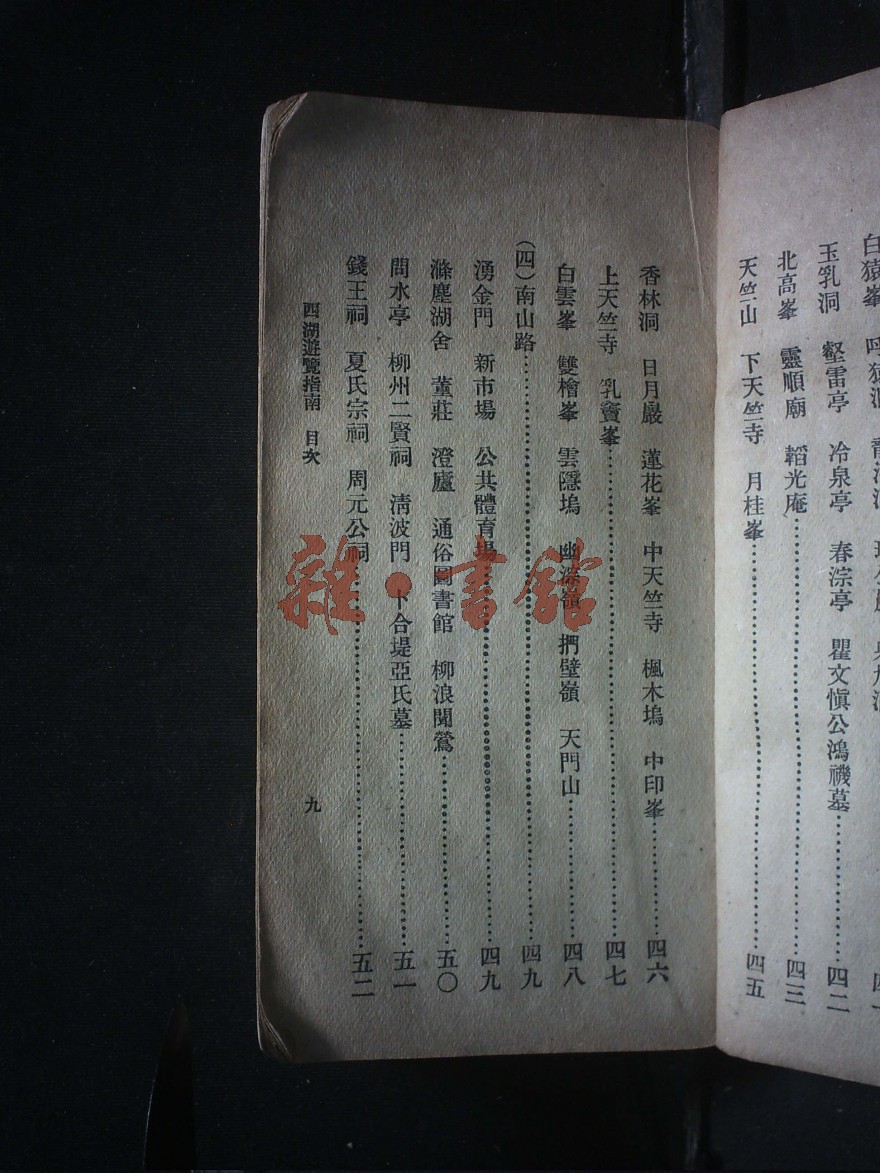 白猿峯
玉乳洞　壑雷亭　冷泉亭　春淙亭　瞿文愼公鴻禨墓……四二
北高峯　靈順廟　韜光庵……四三
天竺山　下天竺寺　月桂峯……四五
香林洞　日月巖　蓮花峯　中天竺寺　楓木塢　中印峯……四六
上天竺寺　乳竇峯……四七
白雲峯　雙檜峯　雲隱塢　幽淙嶺　捫壁嶺　天門山……四八
(四)南山路……四九
湧金門　新市場　公共體育場……四九
滌塵湖舍　董莊　澄廬　通俗圖書館　柳浪聞鶯……五〇
問水亭　柳州二賢祠　清波門　卜合堤亞氏墓……五一
錢王祠　夏氏宗祠　周元公祠……五二
西湖遊覽指南　目次
九
雜·書館